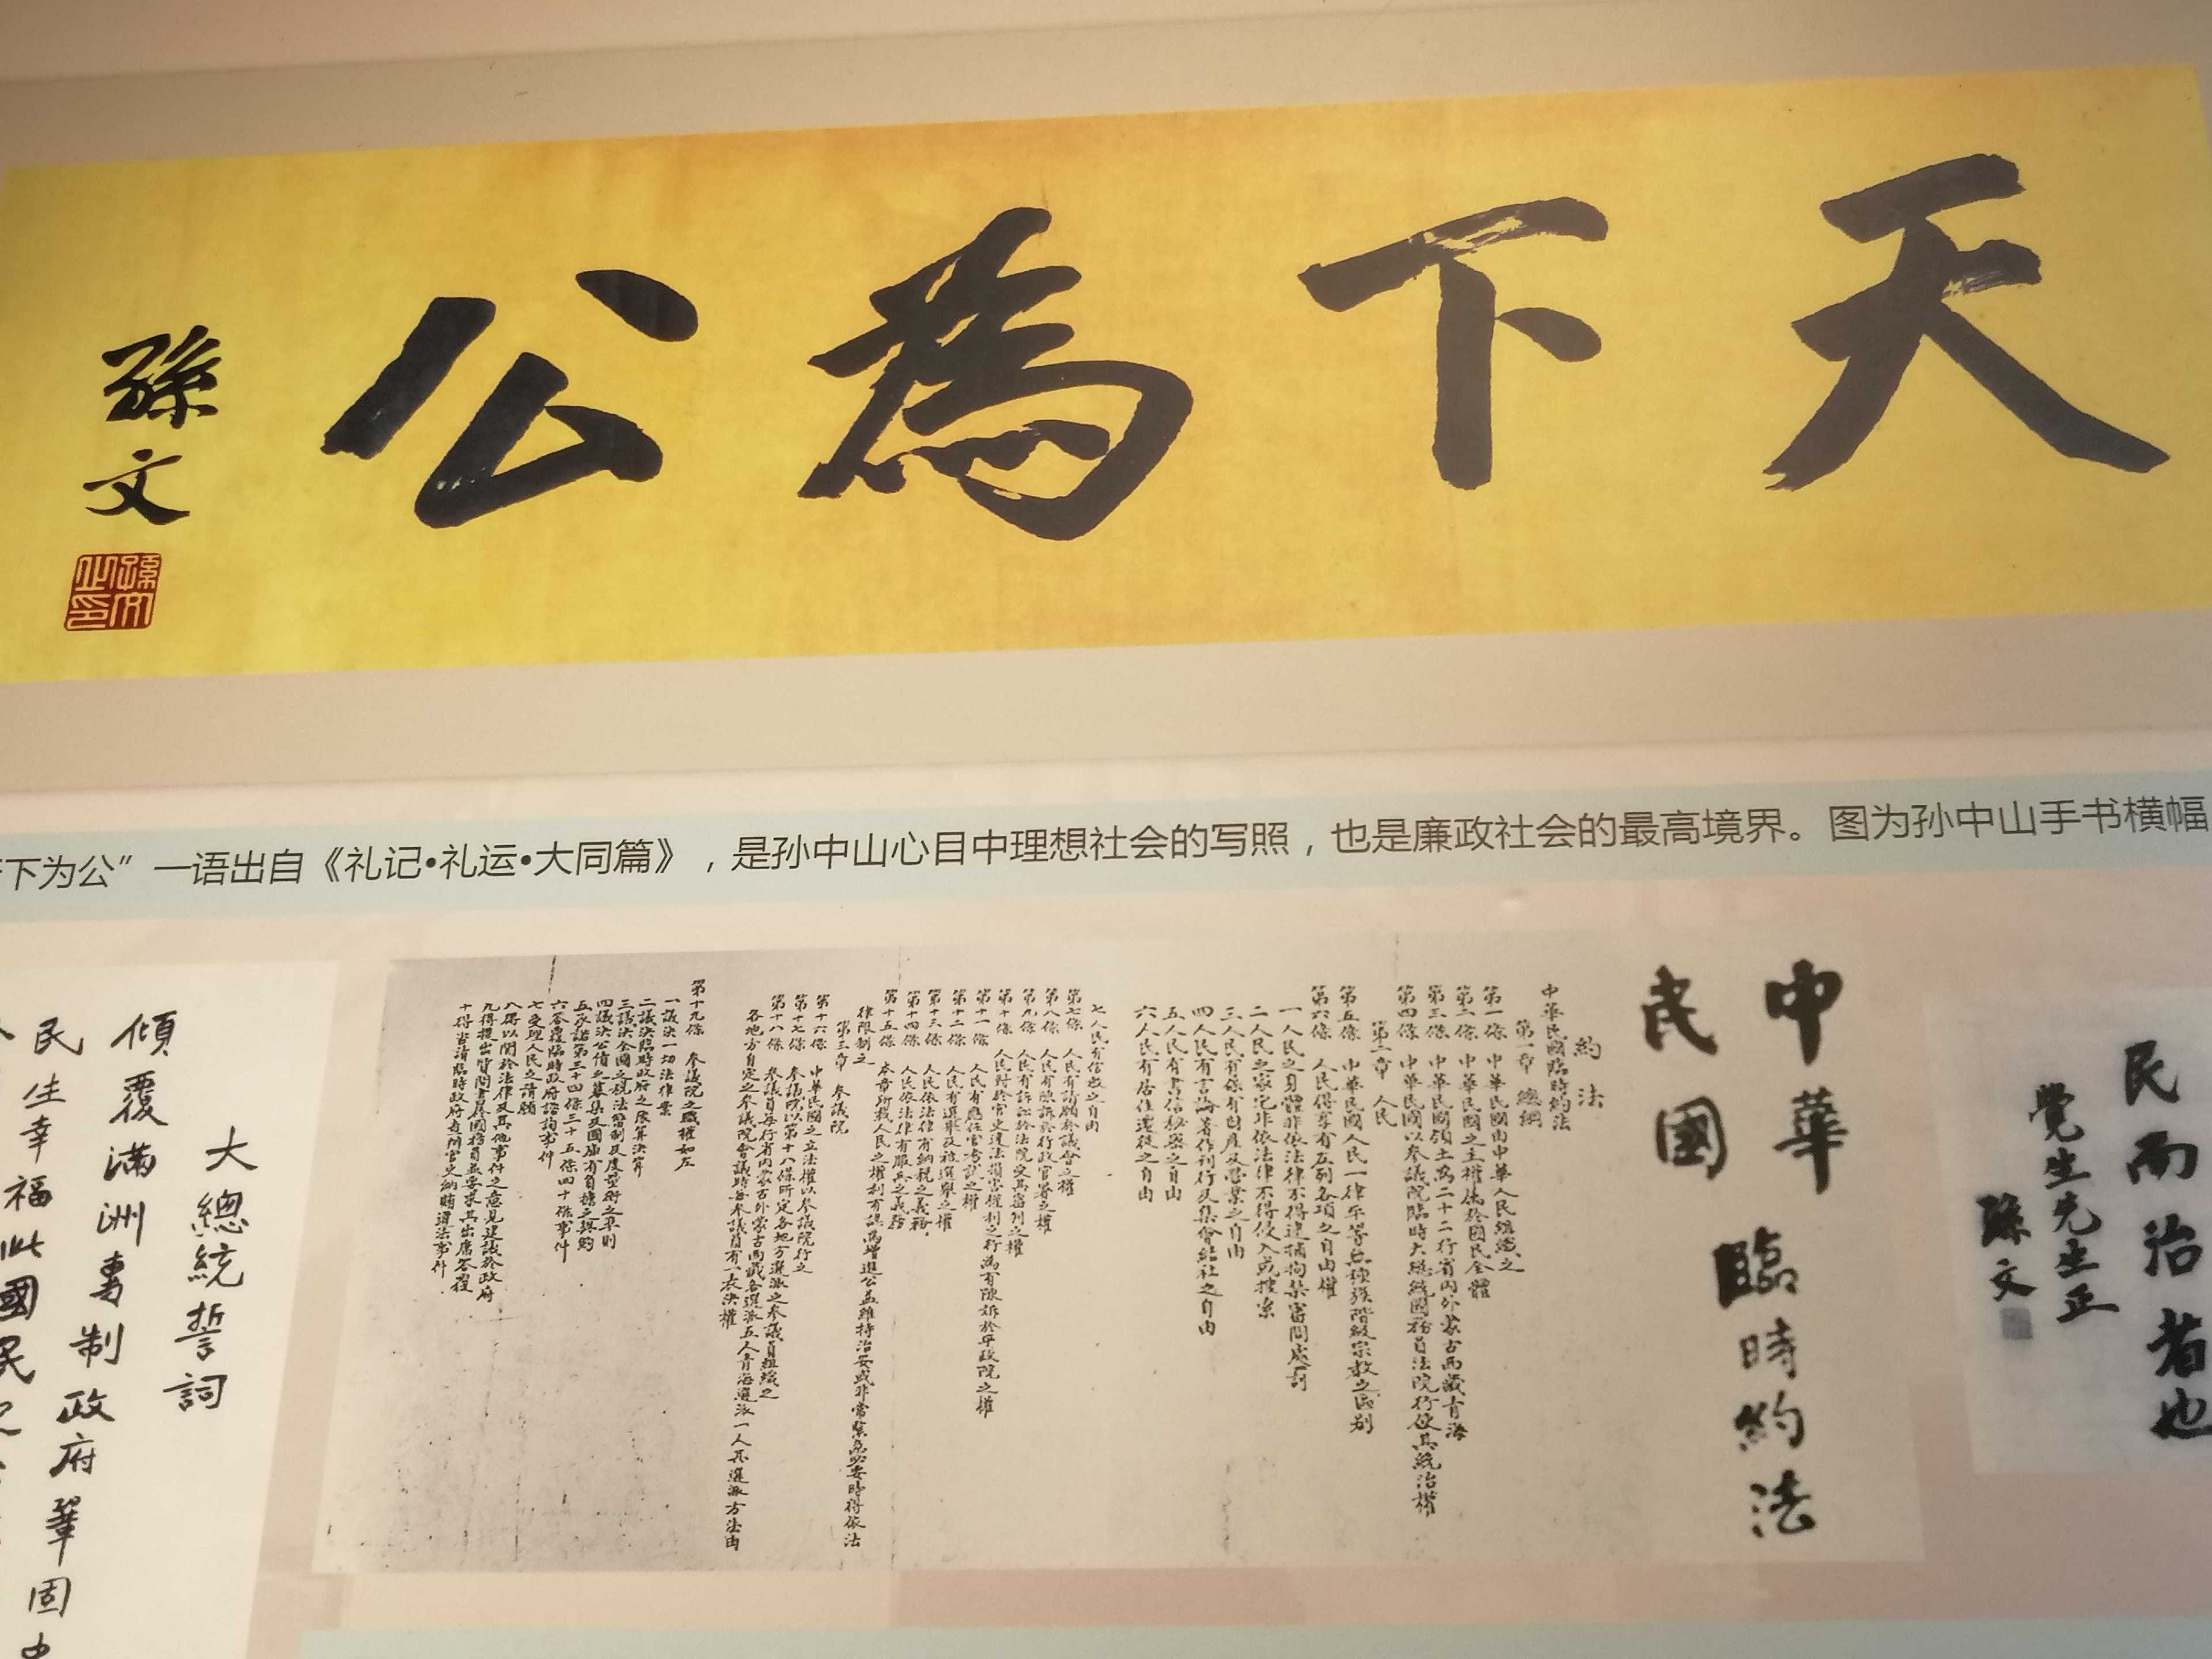 天下為公
孫文
孫文之印
下为公”一语出自《礼记•礼运•大同篇》，是孙中山心目中理想社会的写照，也是廉政社会的最高境界。图为孙中山手书横幅
民而治者也
覺生先生正
孫文
中華
民國
臨時約法
約法
中華民國臨時約法
第一章 總綱
第一條 中華民國由中華人民組織之
第二條 中華民國之主權屬於國民全體
第三條 中華民國領土為二十二行省內外蒙古西藏青海
第四條 中華民國以參議院臨時大總統國務員法院行使其統治權
第二章 人民
第五條 中華民國人民一律平等無種族階級宗教之區別
第六條 人民得享有左列各項之自由權
一人民之身體非依法律不得逮捕拘禁審問處罰
二人民之家宅非依法律不得侵入或搜索
三人民有保有財產及營業之自由
四人民有言論著作刊行及集會結社之自由
五人民有書信秘密之自由
六人民有居住遷徙之自由
七人民有信教之自由
第七條 人民有請願於議會之權
第八條 人民有陳訴於行政官署之權
第九條 人民有訴訟於法院受其審判之權
第十條 人民對於官吏違法損害權利之行為有陳訴於平政院之權
第十一條 人民有應任官考試之權
第十二條 人民有選舉及被選舉之權
第十三條 人民依法律有納稅之義務
第十四條 人民依法律有服兵之義務
第十五條 本章所載人民之權利有認為增進公益維持治安或非常緊急必要時得依法
律限制之
第三章 參議院
第十六條 中華民國之立法權以參議院行之
第十七條 參議院以第十八條所定各地方選派之參議員組織之
第十八條 參議員每行省內蒙古外蒙古西藏各選派五人青海選派一人其選派方法由
各地方自定之參議院會議時每參議員有一表決權
第十九條 參議院之職權如左
一議決一切法律案
二議決臨時政府之預算決算
三議決全國之稅法幣制及度量衡之準則
四議決公債之募集及國庫有負擔之契約
五承諾第三十四條三十五條四十條事件
六答覆臨時政府諮詢事件
七受理人民之請願
八得以關於法律及其他事件之意見建議於政府
九得提出質問書於國務員並要求其出席答覆
十得咨請臨時政府查辦官吏納賄違法事件
大總統誓詞
傾覆滿洲專制政府鞏固中
民生幸福此國民